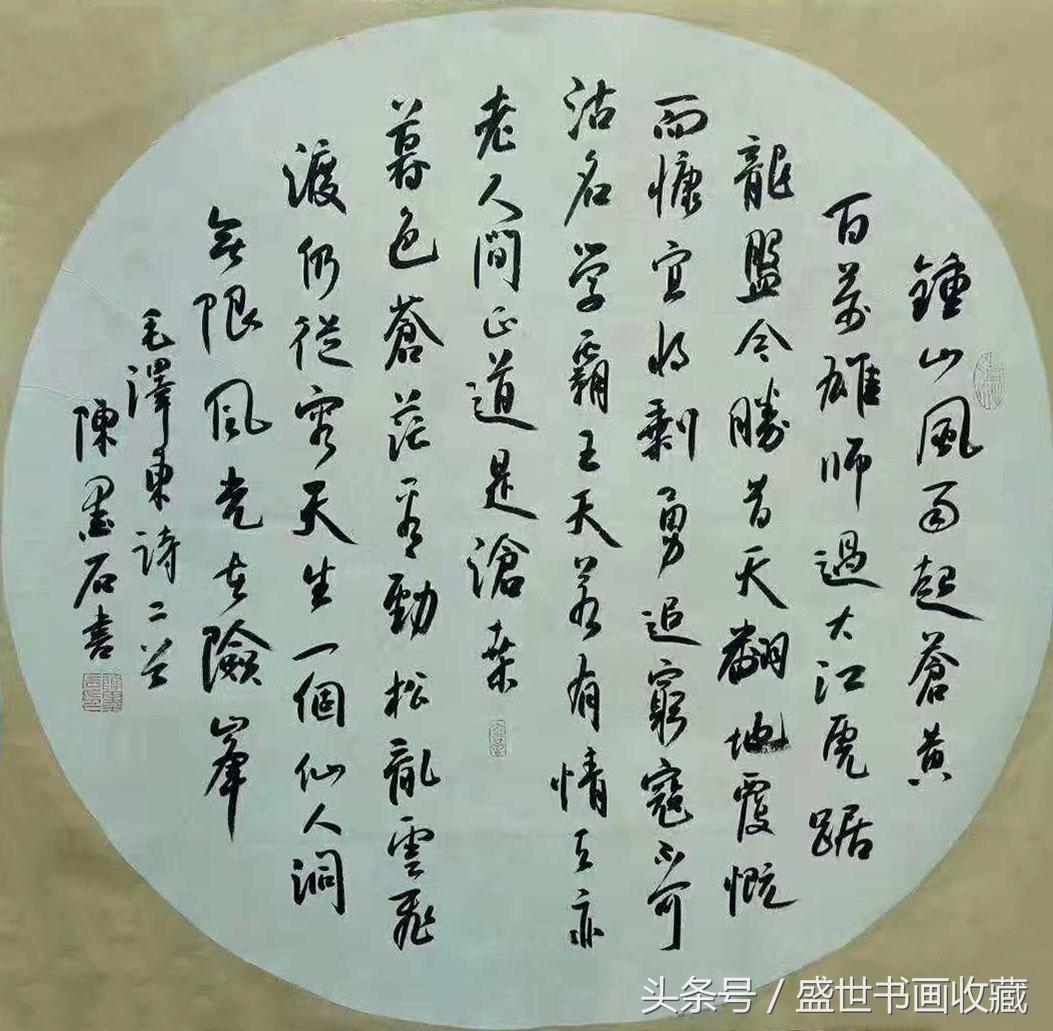 鍾山風雨起蒼黃
百萬雄师過大江虎踞
龍盤今勝昔天翻地覆慨
而慷宜将剩勇追窮寇不可
沽名学霸王天若有情天亦
老人間正道是滄桑
暮色蒼茫看勁松亂雲飛
渡仍從容天生一個仙人洞
無限風光在險峯
毛澤東詩二首
陳墨石書
头条号 / 盛世书画收藏